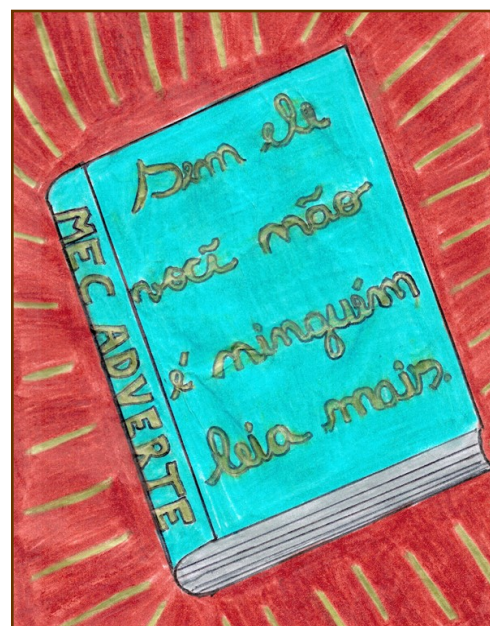 MEC ADVERTE
Sem ele
você não
é ninguém
leia mais.